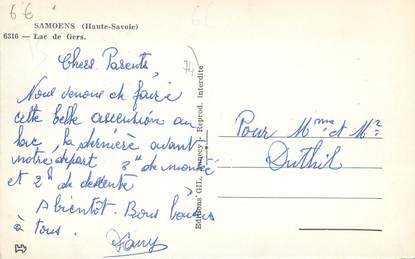 66
SAMOENS (Haute-Savoie)
6316 — Lac de Gers.
74
Chers Parents
Nous venons de faire
cette belle ascension au
lac, la dernière avant
notre départ 3h de montée
et 2h de descente
A bientôt. Bons
à tous.
Editions GIL, Annecy Reprod. interdite
Pour Mme et Mr
Duthil